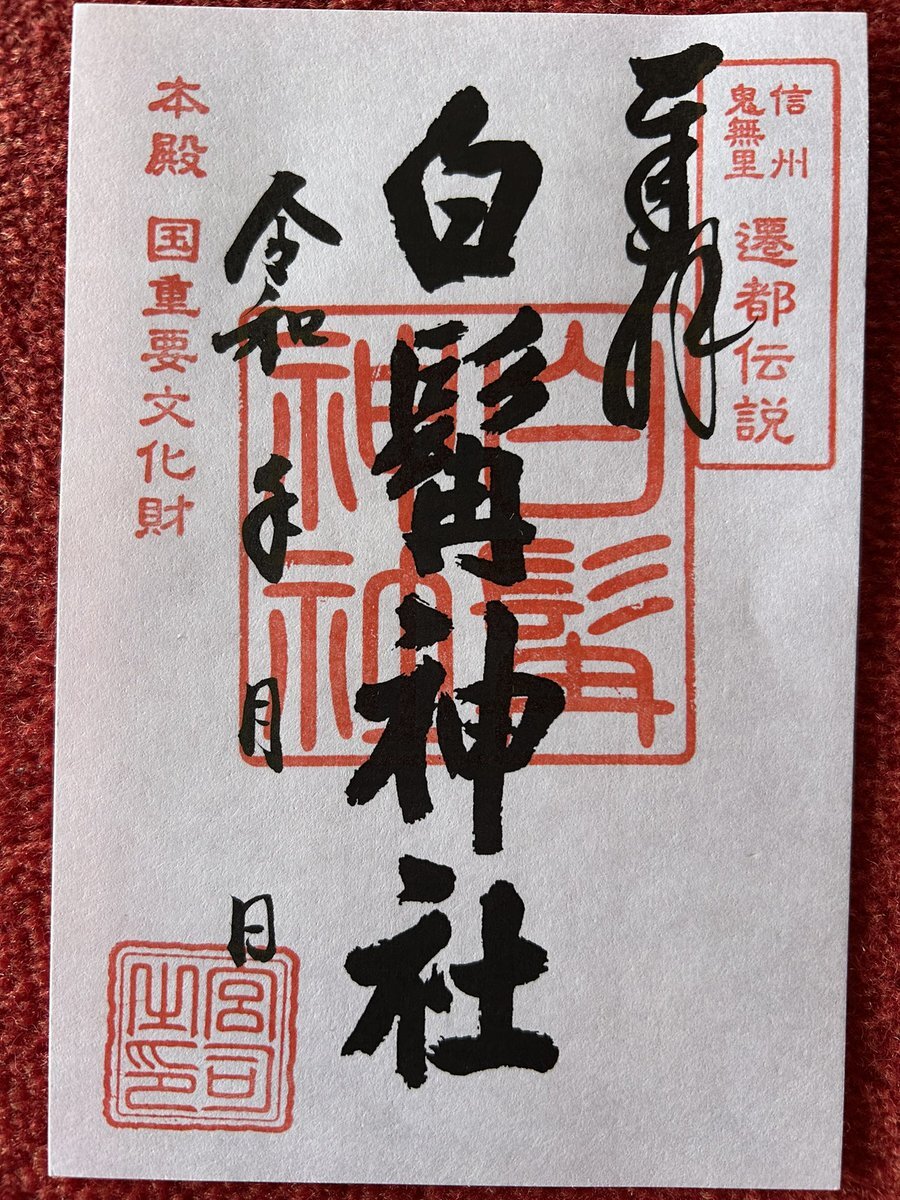 信州
鬼無里
遷都伝説
奉拝
白髯神社
白髯
神社
令和 年 月 日
本殿 国重要文化財
宮司
之印